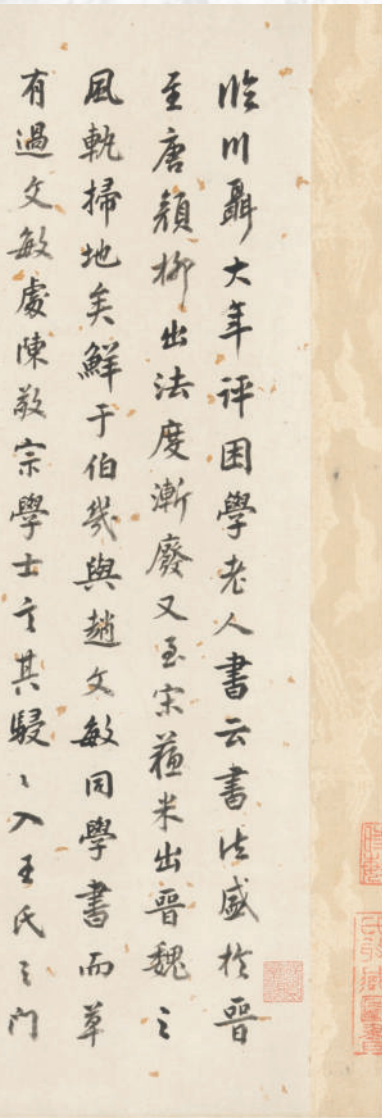 臨川聶大年評困學老人書云書法盛於晉
至唐顏柳出法度漸廢又至宋蘓米出晉魏之
風軌掃地矣鮮于伯幾與趙文敏同學書而草
有過文敏處陳敬宗學士言其駸〻入王氏之門